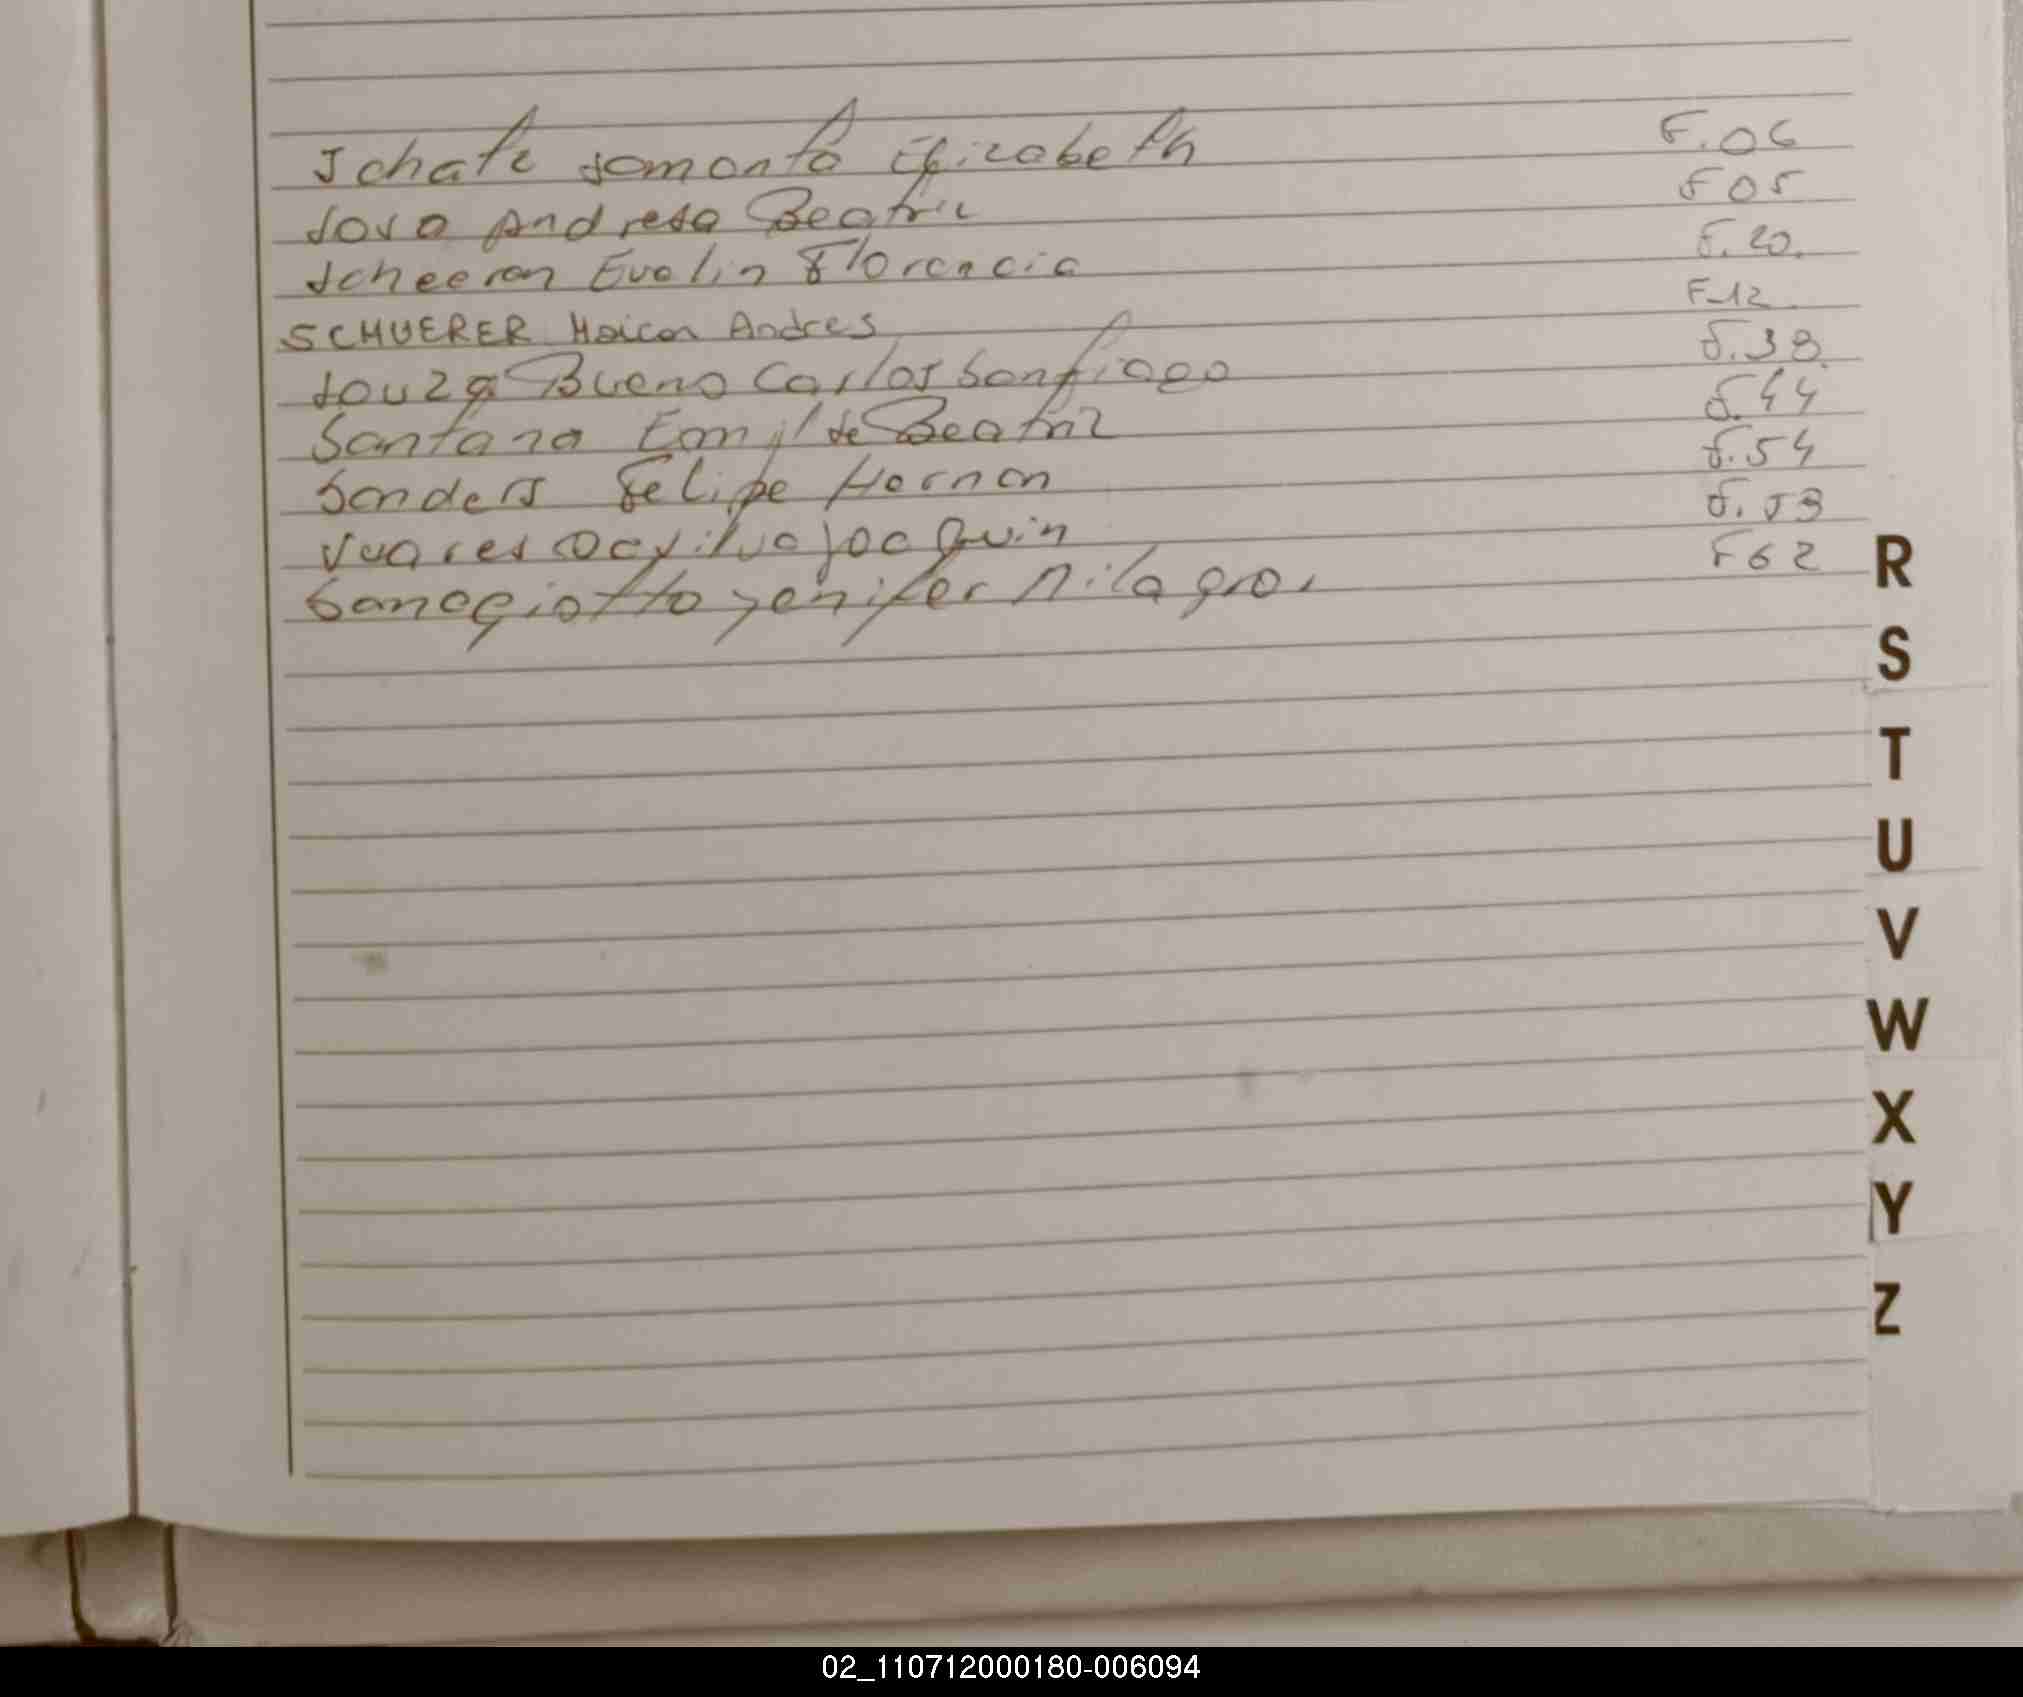 Schatz Samanta Elizabeth F.06
Sosa Andresa Beatriz F 05
Scheeren Evelin Florencia F.20.
SCHUERER Maicon Andres F-12
Souza Bueno Carlos Santiago F.38.
Santana Emilde Beatriz F.44
Sanders Felipe Hernan F.54
Suares Da Silva Joaquin F.53
Sanagiotto Yenifer Milagros F62
R
S
T
U
V
W
X
Y
Z
02_110712000180-006094